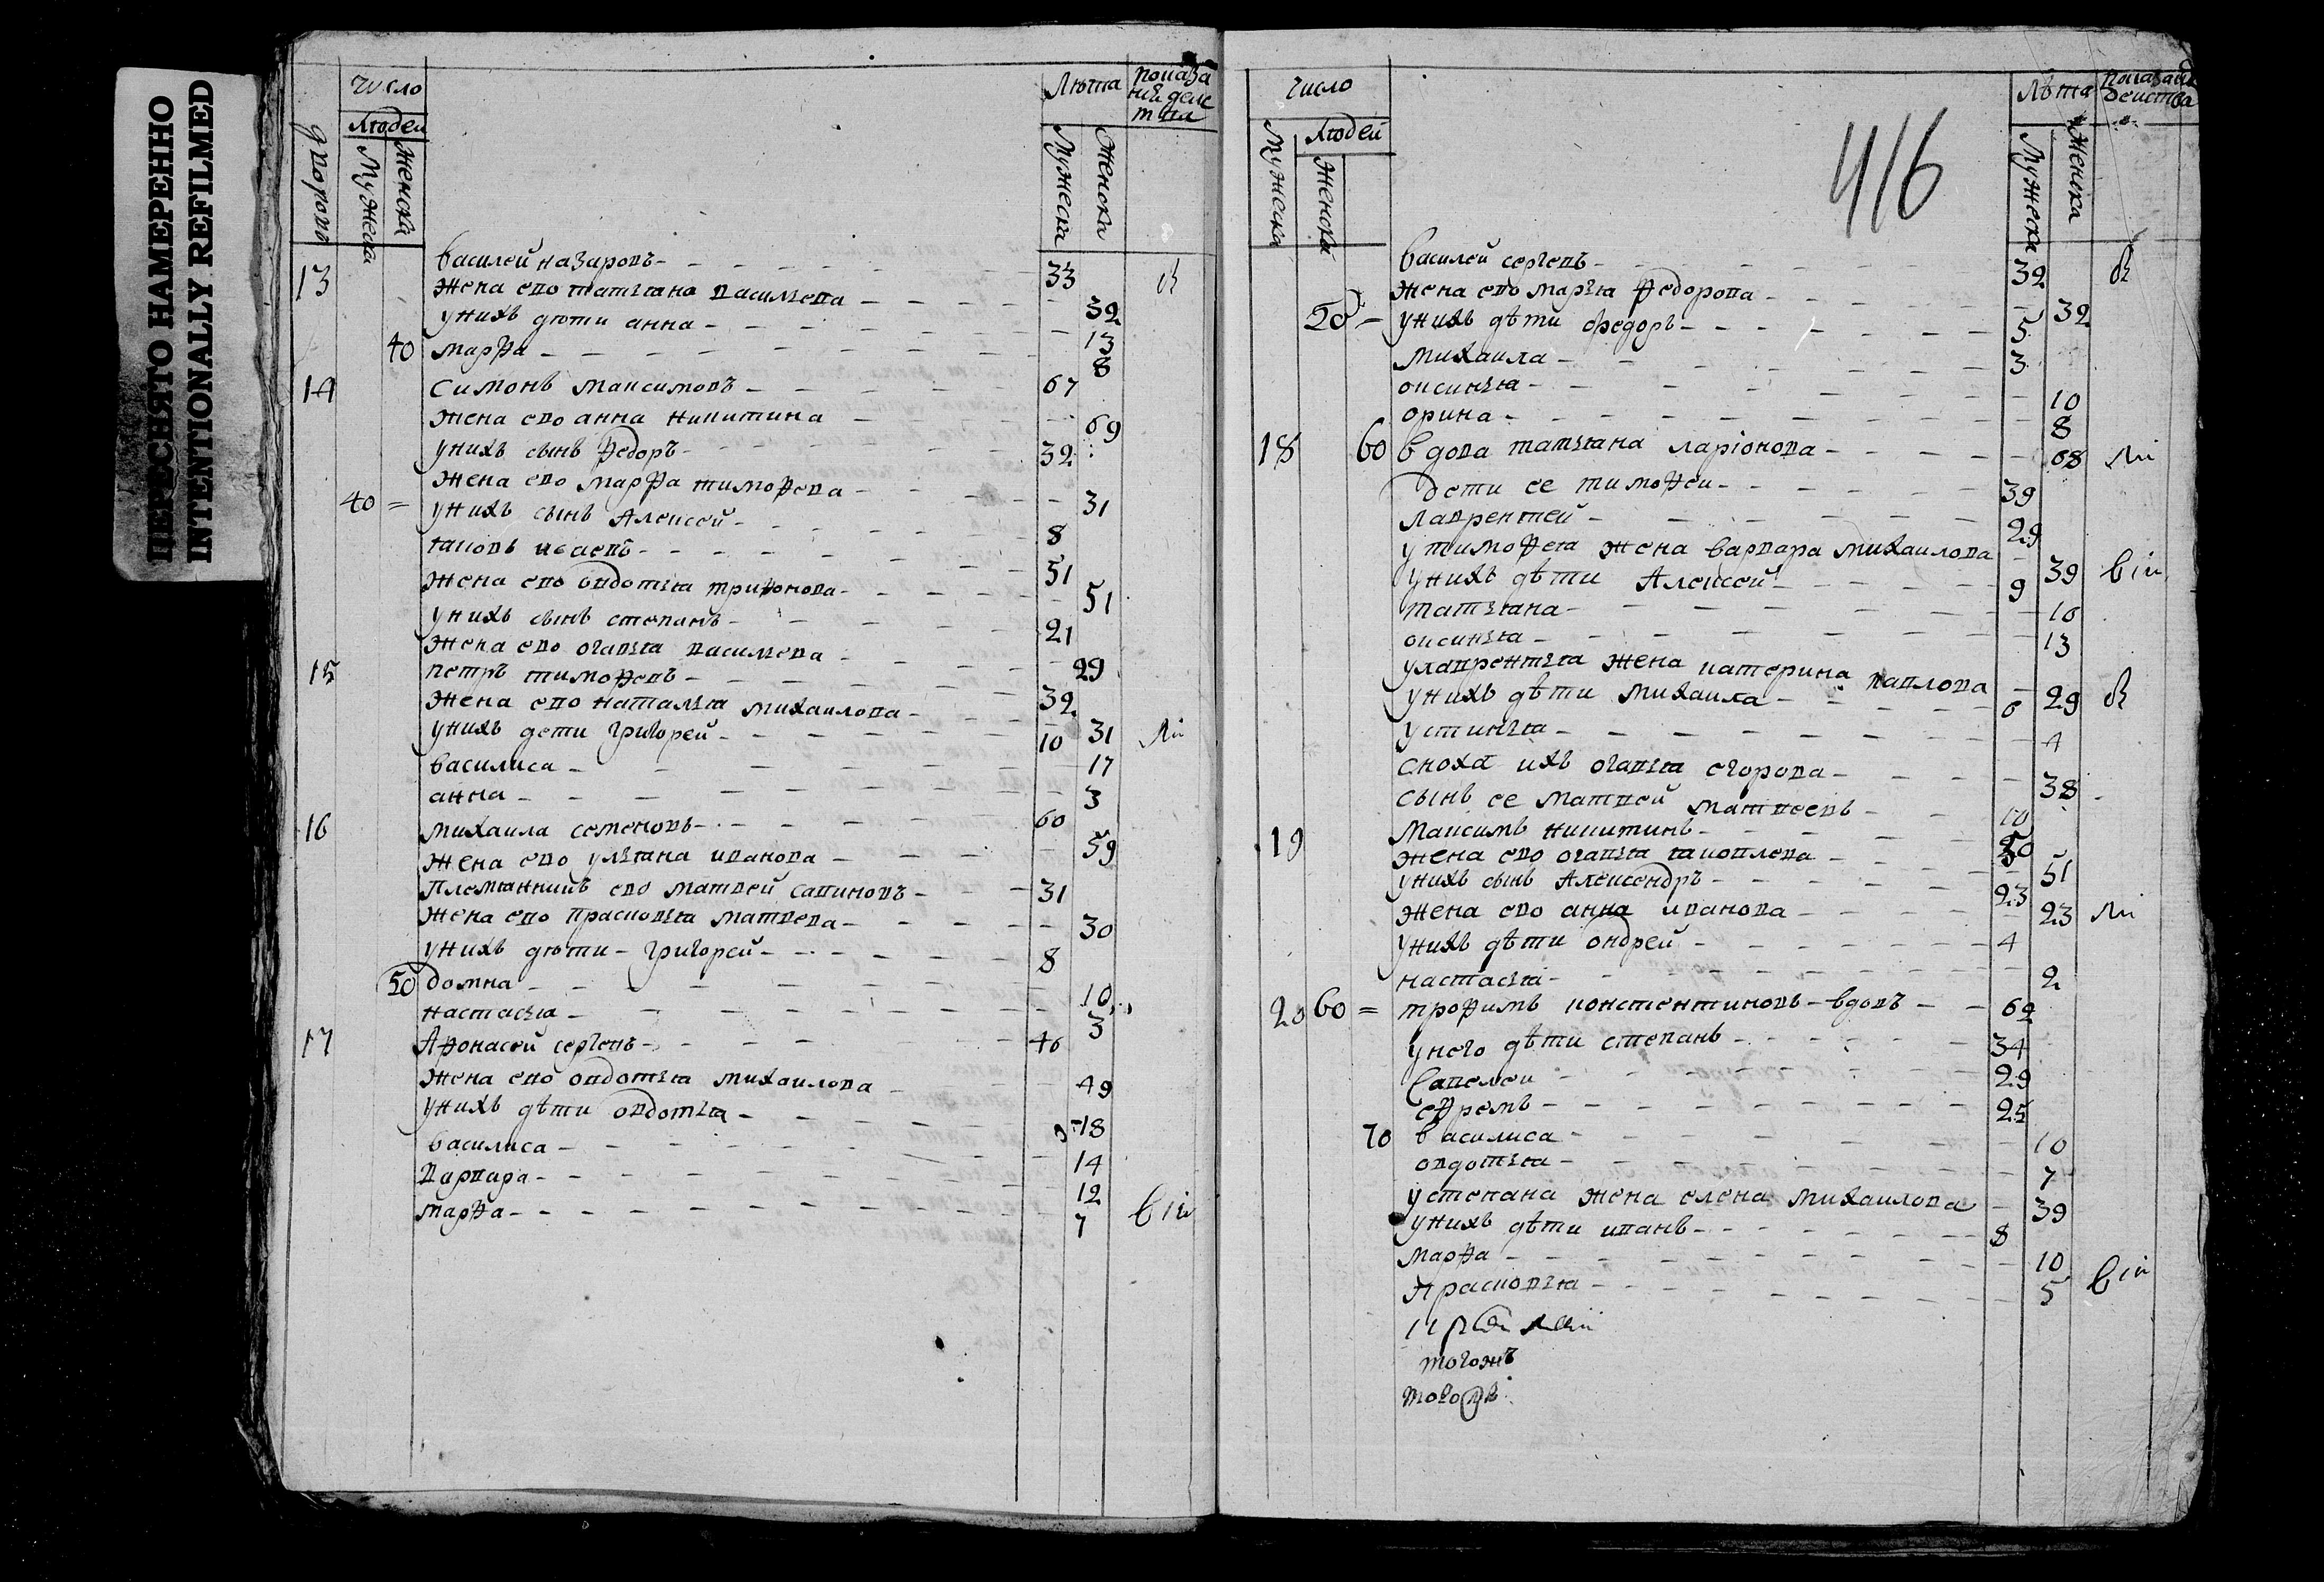 ПЕРЕСНЯТО НАМЕРЕННО
INTENTIONALLY REFILMED
число
людей
дворовъ
Мужеска
женска
Люта
показа
ния дейс
тва
Мужеска
Женска
13 василей назаровъ 33
жена ево татьяна васильева 32
у нихъ дюти анна 13
40 марфа 8
14 симонъ максимовъ 67
жена ево анна никитина 69
у нихъ сынъ федоръ 32
жена ево марфа тимофева 31
40 = у нихъ сынъ Алексей 8
яковъ исаевъ 51
жена ево овдотья трифонова 51
у нихъ сынъ степанъ 21
жена ево огафья васильева 29
15 петръ тимофевъ 32
жена ево наталья михаилова 31
у нихъ дети григорей 10
василиса 17
анна 3
16 михаила семеновъ 60
жена ево ульяна иванова 59
племянникъ ево матвей савиновъ 31
жена ево прасковья матвева 30
у нихъ дюти григорей 8
50 домна 10
настасья 3
17 Афонасей сергевъ 46
жена ево овдотья михаилова 49
у нихъ дѣти овдотья 18
василиса 14
варвара 12
марфа 7
число
людей
Мужеска
женска
Лѣта
показания
действа
Мужеска
Женска
416
василей сергевъ 32
жена ево марья федорова 32
50 – у нихъ дѣти федоръ 5
михаила 3
оксинья 10
орина 8
18 60 вдова татьяна ларіонова 68
дети ее тимофеи 39
лаврентей 29
у тимофея жена варвара михаилова 39
у нихъ дѣти Алексей 9
татьяна 16
оксинья 13
у лаврентья жена катерина павлова 29
у нихъ дѣти михаила 6
устинья 4
сноха ихъ огафья егорова 38
сынъ ее матвей матвеевъ 10
19 максимъ никитинъ 50
жена ево огафья яковлева 51
у нихъ сынъ Александръ 23
жена ево анна иванова 23
у нихъ дѣти ондрей 4
настасья 2
20 60 = трофимъ констентиновъ вдовъ 62
у него дѣти степанъ 34
савелеи 29
ефремъ 25
70 василиса 10
овдотья 7
у степана жена елена михаилова 39
у нихъ дѣти иванъ 8
марфа 10
прасковья 5
тогожъ